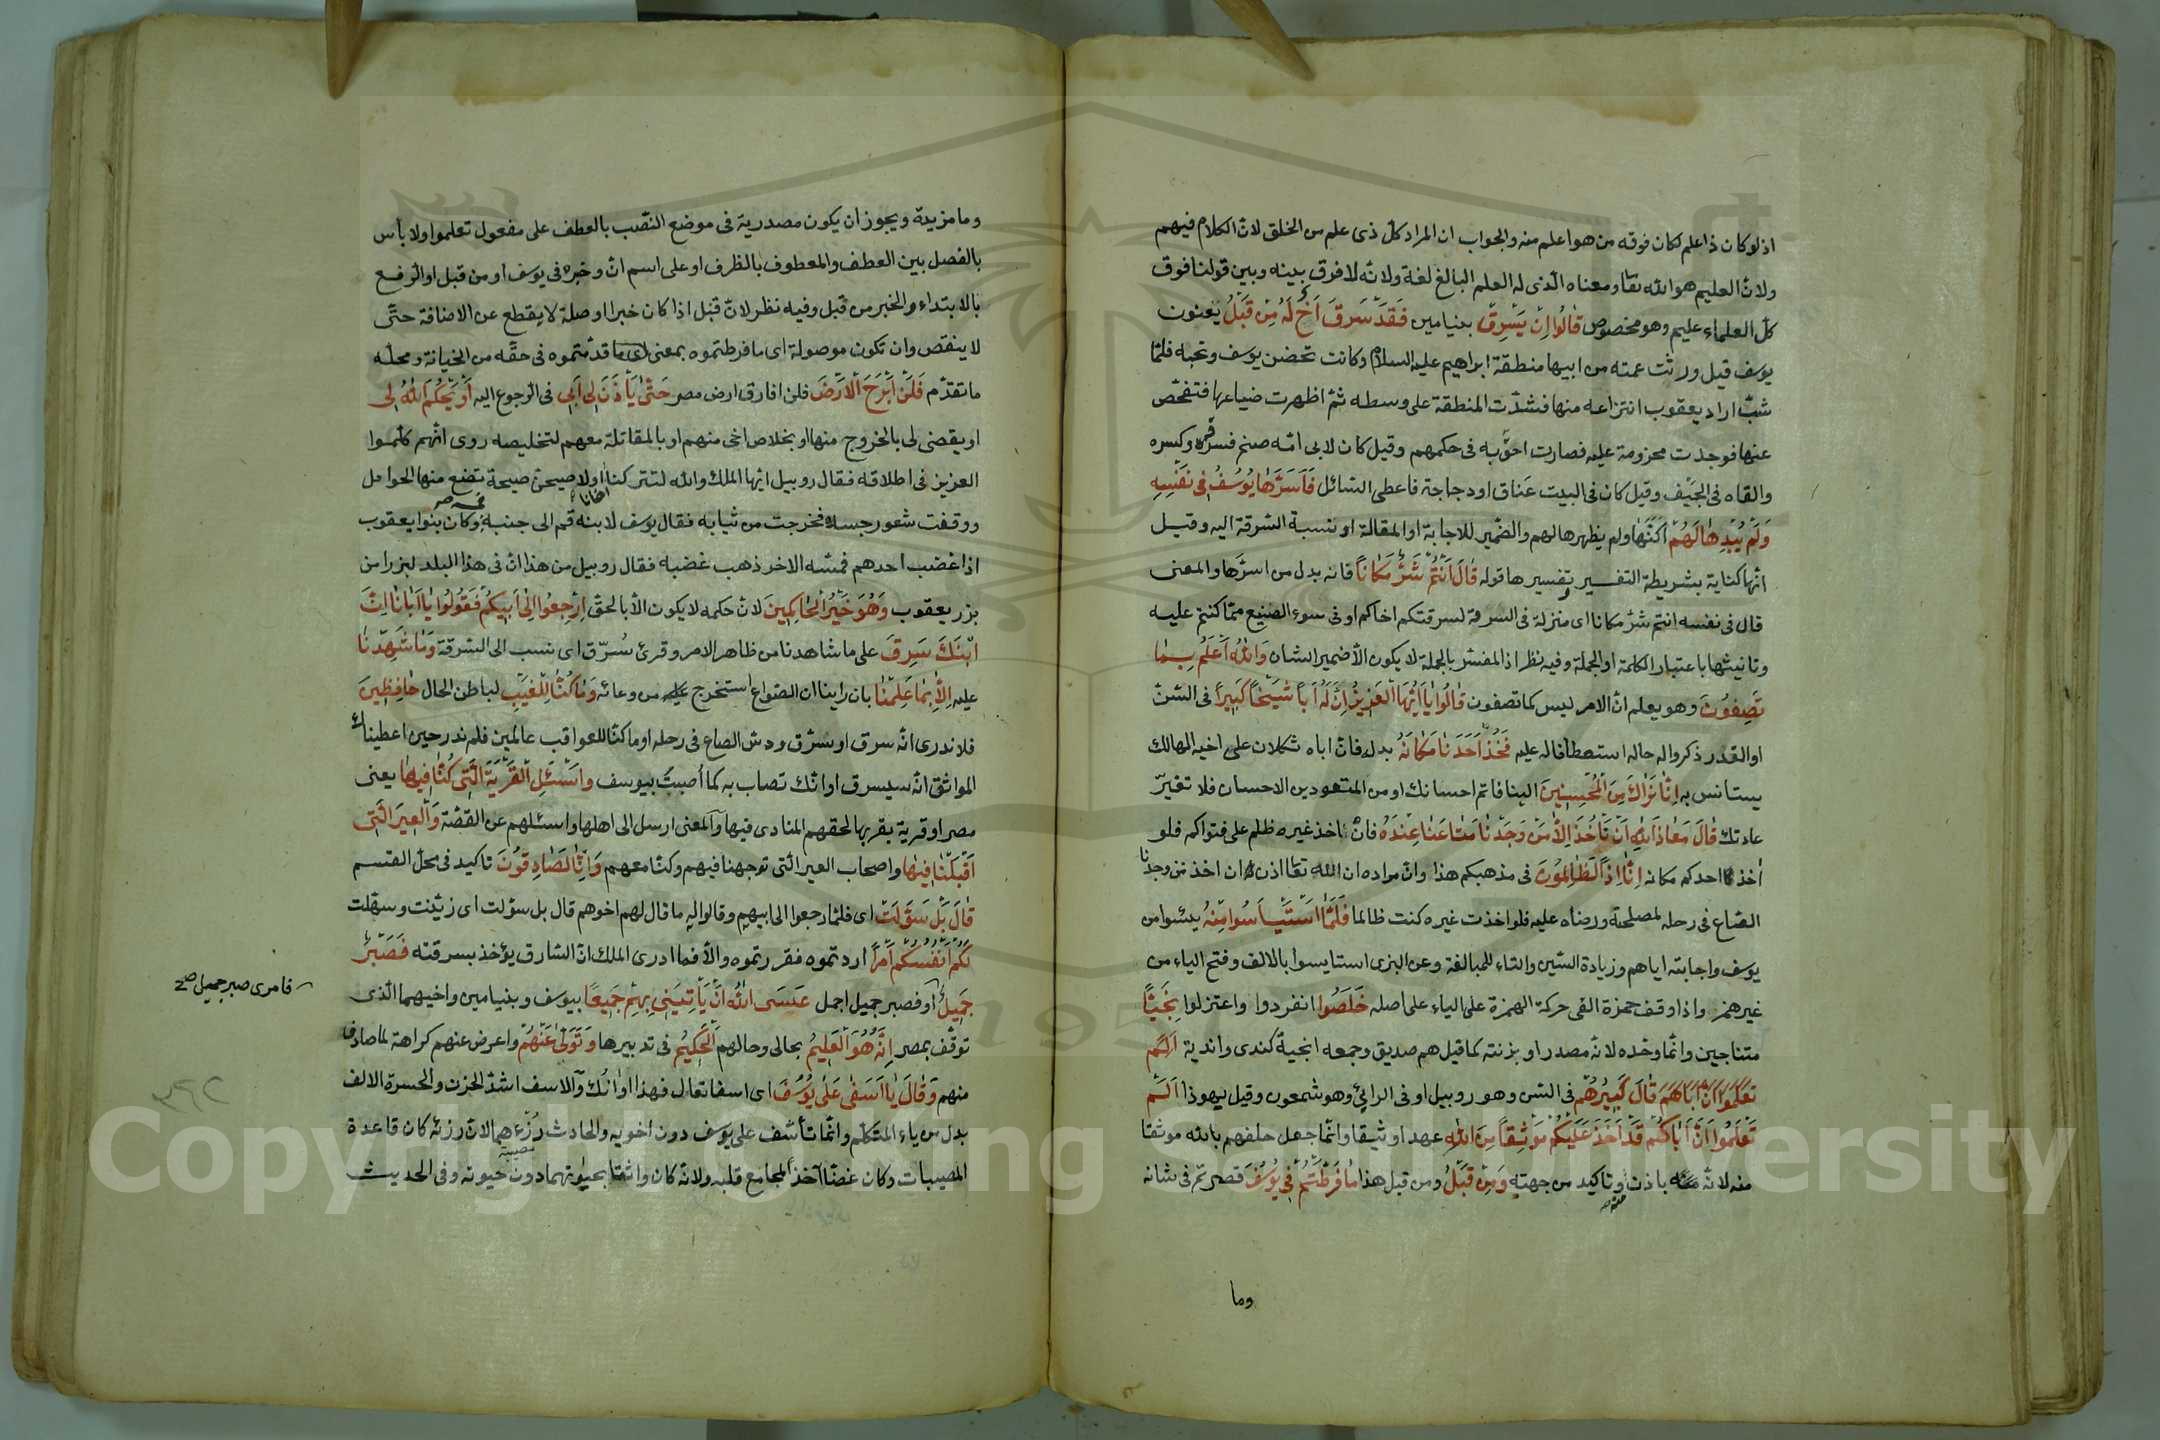 اذ لو كان ذا علم لكان فوقه من هو اعلم منه والجواب ان المراد كل ذى علم من الخلق لان الكلام فيهم
ولان العليم هو الله تعا ومعناه الذى له العلم البالغ لغة ولانه لا فرق بينه وبين قولنا فوق
كل العلماء عليم وهو مخصوص قَالُوا اِنْ يَسْرِقْ بنيامين فَقَدْ سَرَقَ اَخٌ لَهُ مِنْ قَبْلُ يعنون
يوسف قيل ورثت عمته من ابيها منطقة ابراهيم عليه السلام وكانت تحضن يوسف وتحبه فلمّا
شبّ اراد يعقوب انتزاعه منها فشدّت المنطقة على وسطه ثمّ اظهرت ضياعها فتفحّص
عنها فوجدت محزومة عليه فصارت احقّ به فى حكمهم وقيل كان لابى امّه صنم فسرقه وكسره
والقاه فى الجيف وقيل كان فى البيت عَناق او دجاجة فاعطى السّائل فَاَسَرَّهَا يُوسُفُ فِى نَفْسِهِ
وَلَمْ يُبْدِهَا لَهُمْ اكنّها ولم يظهرها لهم والضّمير للاجابة او المقالة او نسبة السّرقة اليه وقيل
انّها كناية بشريطة التفسير وتفسيرها قوله قَالَ اَنْتُمْ شَرٌّ مَكَانًا فانه بدل من اسرّها والمعنى
قال فى نفسه انتم شرّ مكانا اى منزلة فى السرقة لسرقتكم اخاكم او فى سوء الصنيع ممّا كنتم عليه
وتانيثها باعتبار الكلمة او الجملة وفيه نظر اذ المفسّر بالجملة لا يكون الّا ضمير الشان وَاللهُ اَعْلَمُ بِمَا
تَصِفُونَ وهو يعلم انّ الامر ليس كما تصفون قَالُوا يَا اَيُّهَا الْعَزِيزُ اِنَّ لَهُ اَبًا شَيْخًا كَبِيرًا فى السّنّ
او القدر ذكروا له حاله استعطافا له عليه فَخُذْ اَحَدَنَا مَكَانَهُ بدله فانّ اباه ثكلان على اخيه الهالك
يستانس به اِنَّا نَرٰاكَ مِنَ الْمُحْسِنِينَ الينا فاتم احسانك او من المتعودين الاحسان فلا تغيّر
عادتك قَالَ مَعَاذَ اللهِ اَنْ نَأْخُذَ اِلَّا مَنْ وَجَدْنَا مَتَاعَنَا عِنْدَهُ فانّ اخذ غيره ظلم على فتواكم فلو
اخذ احدكم مكانه اِنَّا اِذًا لَظَالِمُونَ فى مذهبكم هذا وانّ مراده ان الله تعا اذن ان اخذ من وجدنا
الصّاع فى رحله لمصلحته ورضاه عليه فلو اخذت غيره كنت ظالما فَلَمَّا اسْتَيْاَسُوا مِنْهُ يئسوا من
يوسف واجابته اياهم وزيادة السّين والتاء للمبالغة وعن البزى استايسوا بالالف وفتح الياء من
غير همز واذا وقف حمزة القى حركة الهمزة على الياء على اصله خَلَصُوا انفردوا واعتزلوا نَجِيًّا
متناجين وانّما وحّده لانّه مصدر او بزنته كما قيل هم صديق وجمعه انجية كندى واندية اَلَمْ
تعلموا انّ اباكم قَالَ كَبِيرُهُمْ فى السّن وهو روبيل او فى الرائ وهو شمعون وقيل يهوذا اَلَمْ
تَعْلَمُوا اَنَّ اَبَاكُمْ قَدْ اَخَذَ عَلَيْكُمْ مَوْثِقًا مِنَ اللهِ عهدا وثيقا وانّما جعل حلفهم بالله موثقا
منه لانّه باذن منه وتاكيد من جهته وَمِنْ قَبْلُ ومن قبل هذا مَا فَرَّطْتُمْ فِى يُوسُفَ قصرتم فى شانه
وما
وما مزيدة ويجوز ان يكون مصدرية فى موضع النّصب بالعطف على مفعول تعلموا ولا بأس
بالفصل بين العطف والمعطوف بالظرف او على اسم انّ وخبره فى يوسف او من قبل او الرفع
بالابتداء والخبر من قبل وفيه نظر لانّ قبل اذا كان خبرا او صلة لا يقطع عن الاضافة حتّى
لا ينقص وان تكون موصولة اى ما فرطتموه بمعنى ما قدّمتموه فى حقّه من الخيانة ومحلّه
ما تقدّم فَلَنْ اَبْرَحَ الْاَرْضَ فلن افارق ارض مصر حَتّٰى يَأْذَنَ لِى اَبِى فى الرجوع اليه اَوْ يَحْكُمَ اللهُ لِى
او يقضى لى بالخروج منها او بخلاص اخى منهم او بالمقاتلة معهم لتخليصه روى انّهم كلّموا
العزيز فى اطلاقه فقال روبيل ايّها الملك والله لتتركنا او لاصيحنّ صيحة تضع منها الحوامل
ووقفت شعور جسده فخرجت من ثيابه فقال يوسف لابنه قم الى جنبه وكان بنوا يعقوب
اذا غضب احدهم فمسّه الاخر ذهب غضبه فقال روبيل من هذا انّ فى هذا البلد لبزرا من
بزر يعقوب وَهُوَ خَيْرُ الْحَاكِمِينَ لانّ حكمه لا يكون الّا بالحقّ اِرْجِعُوا اِلٰى اَبِيكُمْ فَقُولُوا يَا اَبَانَا اِنَّ
ابْنَكَ سَرَقَ على ما شاهدنا من ظاهر الامر وقرئ سُرّق اى نسب الى السّرقة وَمَا شَهِدْنَا
عليه اِلَّا بِمَا عَلِمْنَا بان راينا ان الصّواع استخرج من وعائه وَمَا كُنَّا لِلْغَيْبِ لباطن الحال حَافِظِينَ
فلا ندرى انّه سرق او سرّق ودسّ الصاع فى رحله او ما كنّا للعواقب عالمين فلم ندر حين اعطيناك
المواثق انّه سيسرق او انّك تصاب به كما اُصبت بيوسف وَاسْئَلِ الْقَرْيَةَ الَّتِى كُنَّا فِيهَا يعنى
مصر او قرية بقربها لحقهم المنادى فيها والمعنى ارسل الى اهلها واسئلهم عن القصّة وَالْعِيرَ الَّتِى
اَقْبَلْنَا فِيهَا واصحاب العير الّتى توجهنا فيهم وكنّا معهم وَاِنَّا لَصَادِقُونَ تاكيد فى محل القسم
قَالَ بَلْ سَوَّلَتْ اى فلمّا رجعوا الى ابيهم وقالوا له ما قال لهم اخوهم قال بل سوّلت اى زيّنت وسهّلت
لَكُمْ اَنْفُسُكُمْ اَمْرًا اردتموه فقررتموه والّا فما ادرى الملك انّ السّارق يؤخذ بسرقته فَصَبْرٌ
جَمِيلٌ او فصبر جميل اجمل عَسَى اللهُ اَنْ يَأْتِيَنِى بِهِمْ جَمِيعًا بيوسف وبنيامين واخيهما الّذى
فامرى صبر جميل صح
توقّف بمصر اِنَّهُ هُوَ الْعَلِيمُ بحالى وحالهم الْحَكِيمُ فى تدبيرها وَتَوَلّٰى عَنْهُمْ واعرض عنهم كراهة لما صادف
منهم وَقَالَ يَا اَسَفٰى عَلٰى يُوسُفَ اى اسفا تعال فهذا اوانك والاسف اشدّ الحزن والحسرة الالف
بدل من ياء المتكلّم وانّما تأسّف على يوسف دون اخويه والحادث رزءهما لانّ رزئه كان قاعدة
المصيبات وكان غضّا آخذا لمجامع قلبه ولانّه كان واثقا بحيٰوتهما دون حيوته وفى الحديث
Copyright © King Saud University
1957